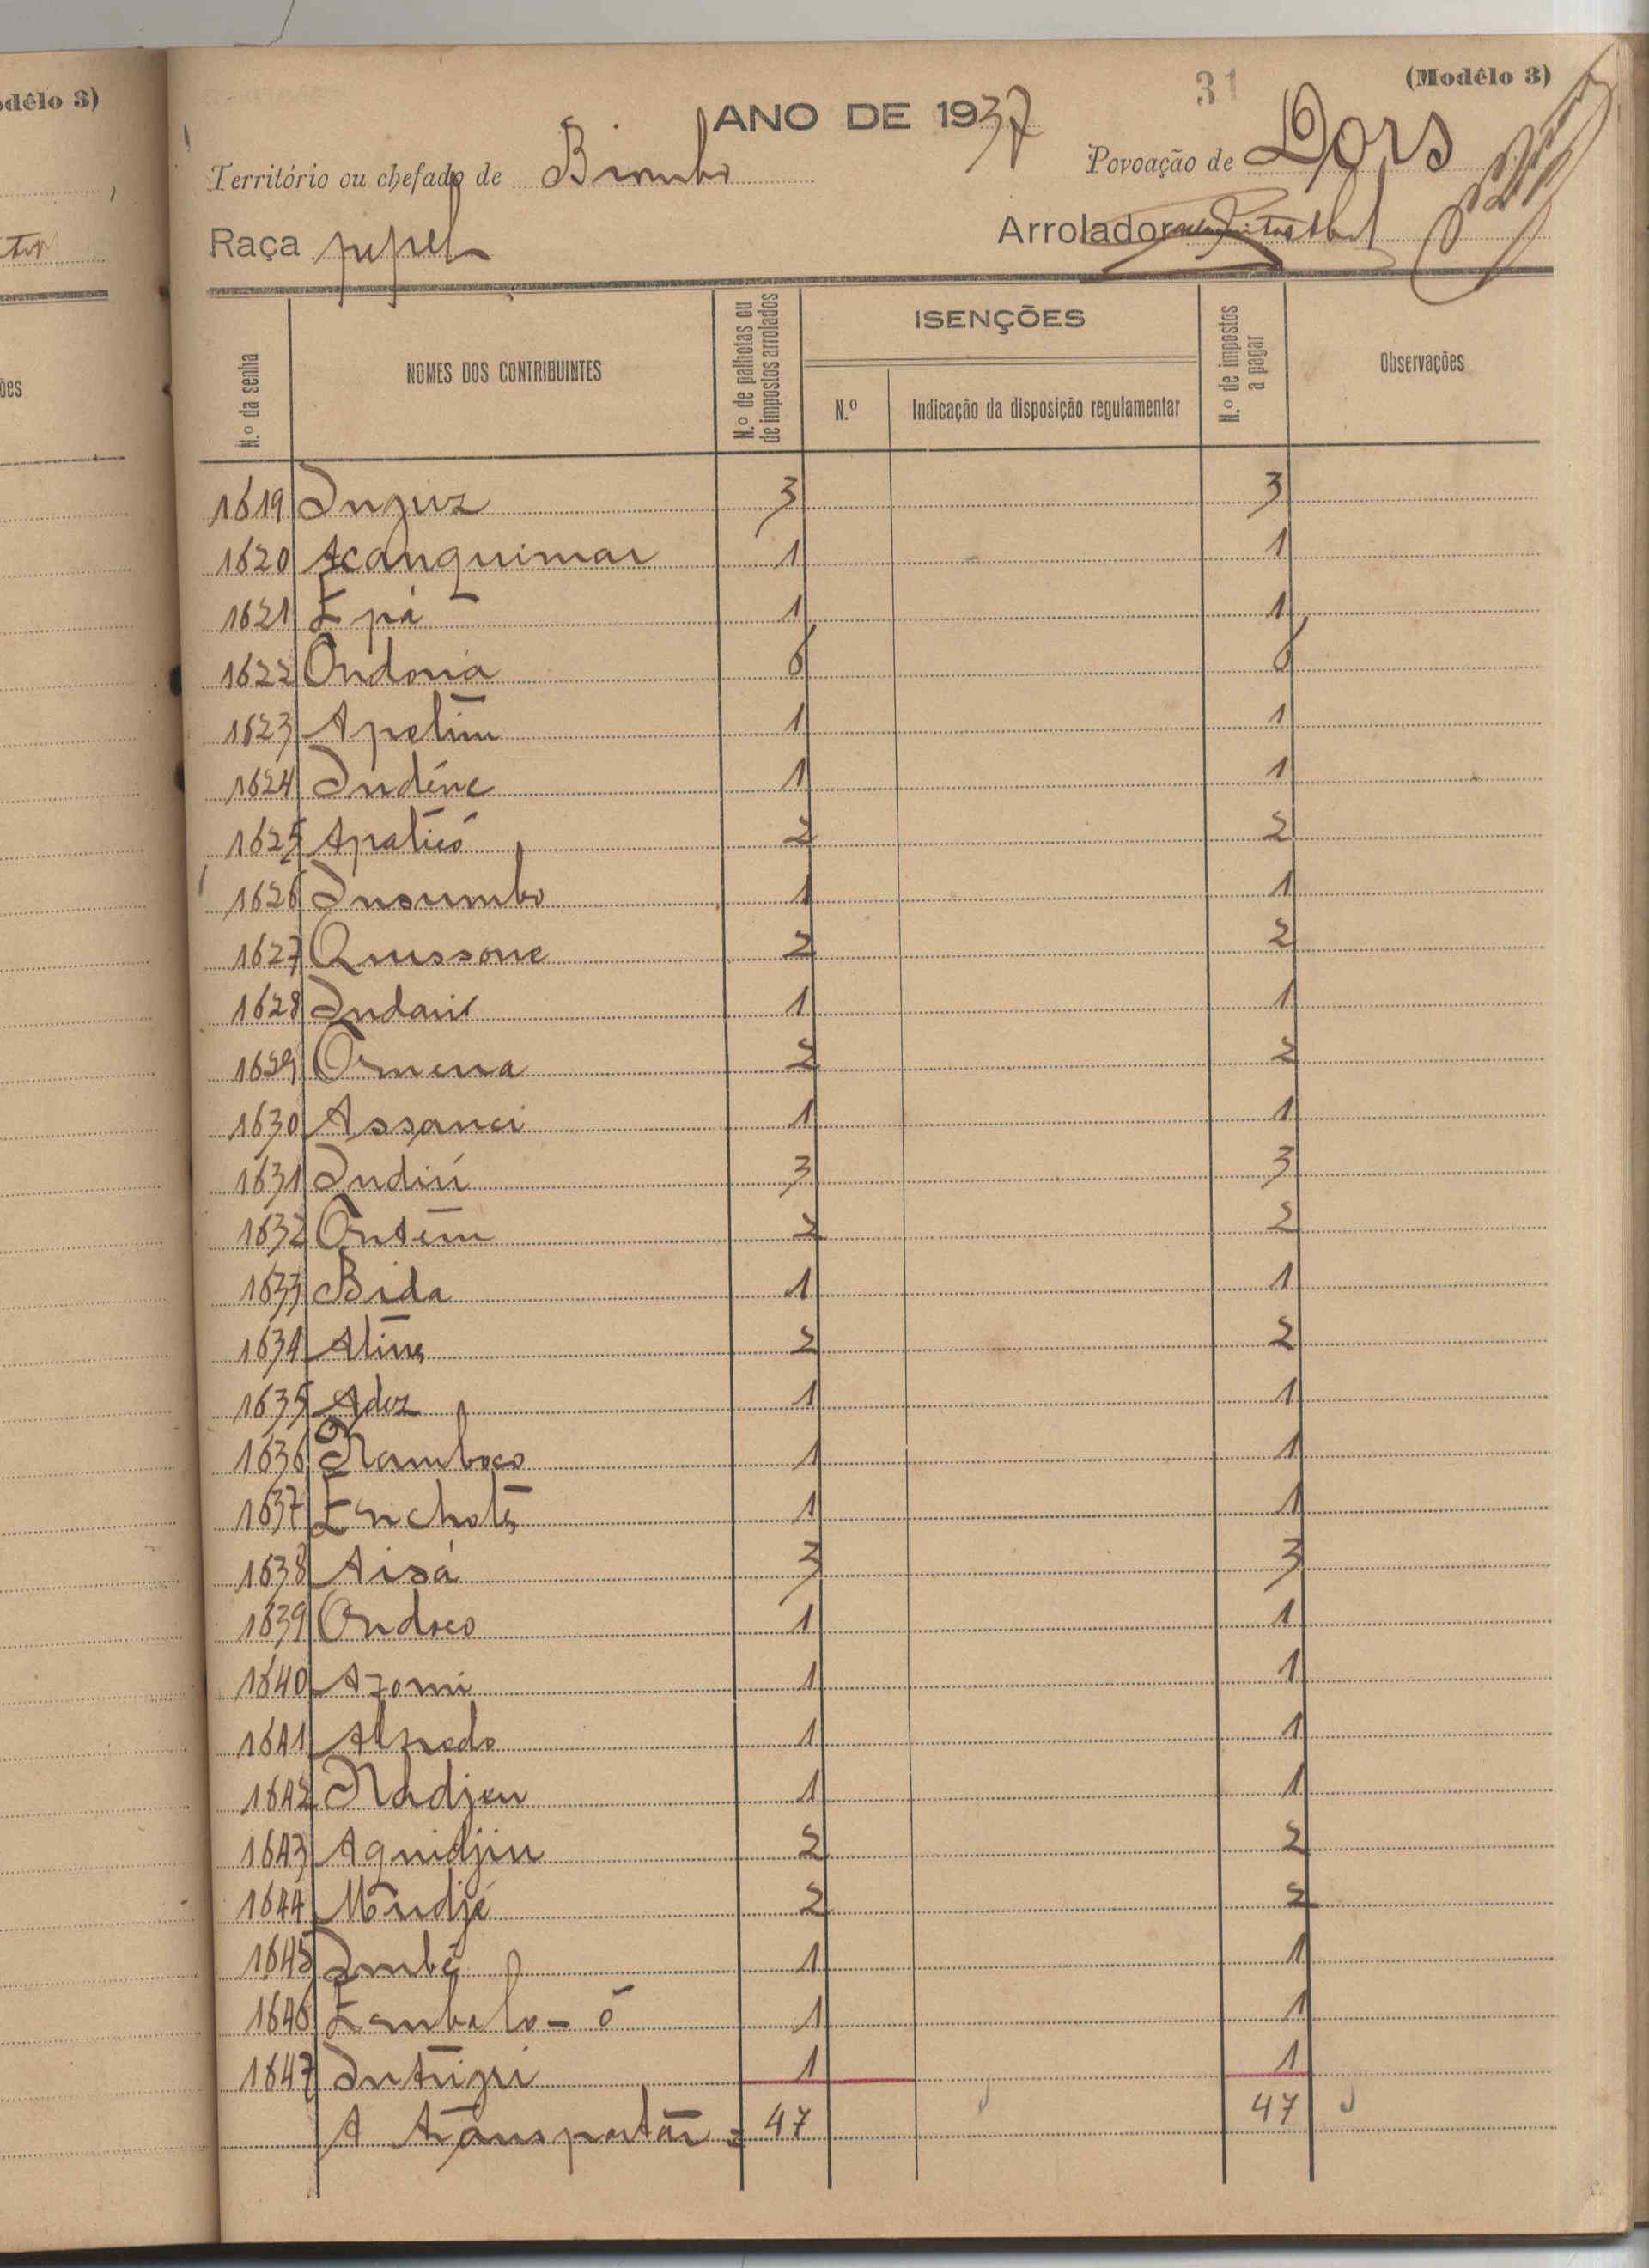 (Modêlo 3)
31
ANO DE 1937
Território ou chefado de Bimbo
Povoação de Dors
Raça pepel
Arrolador
N.º da senha
NOMES DOS CONTRIBUINTES
N.º de palhotas ou de impostos arrolados
ISENÇÕES
N.º
Indicação da disposição regulamentar
N.º de impostos a pagar
Observações
1619 3 3
1620 Acanquimar 1 1
1621 Epá 1 1
1622 Ondoria 6 6
1623 Apetim 1 1
1624 Indéne 1 1
1625 Apaticó 2 2
1626 Insumbo 1 1
1627 Quissone 2 2
1628 1 1
1629 2 2
1630 Assanci 1 1
1631 3 3
1632 Ontem 2 2
1633 Bida 1 1
1634 2 2
1635 1 1
1636 Namboco 1 1
1637 Enchote 1 1
1638 Aisá 3 3
1639 Ondoco 1 1
1640 1 1
1641 Alfredo 1 1
1642 1 1
1643 Aquidjin 2 2
1644 2 2
1645 Imbé 1 1
1646 Embalo-ó 1 1
1647 1 1
A transportar = 47 47